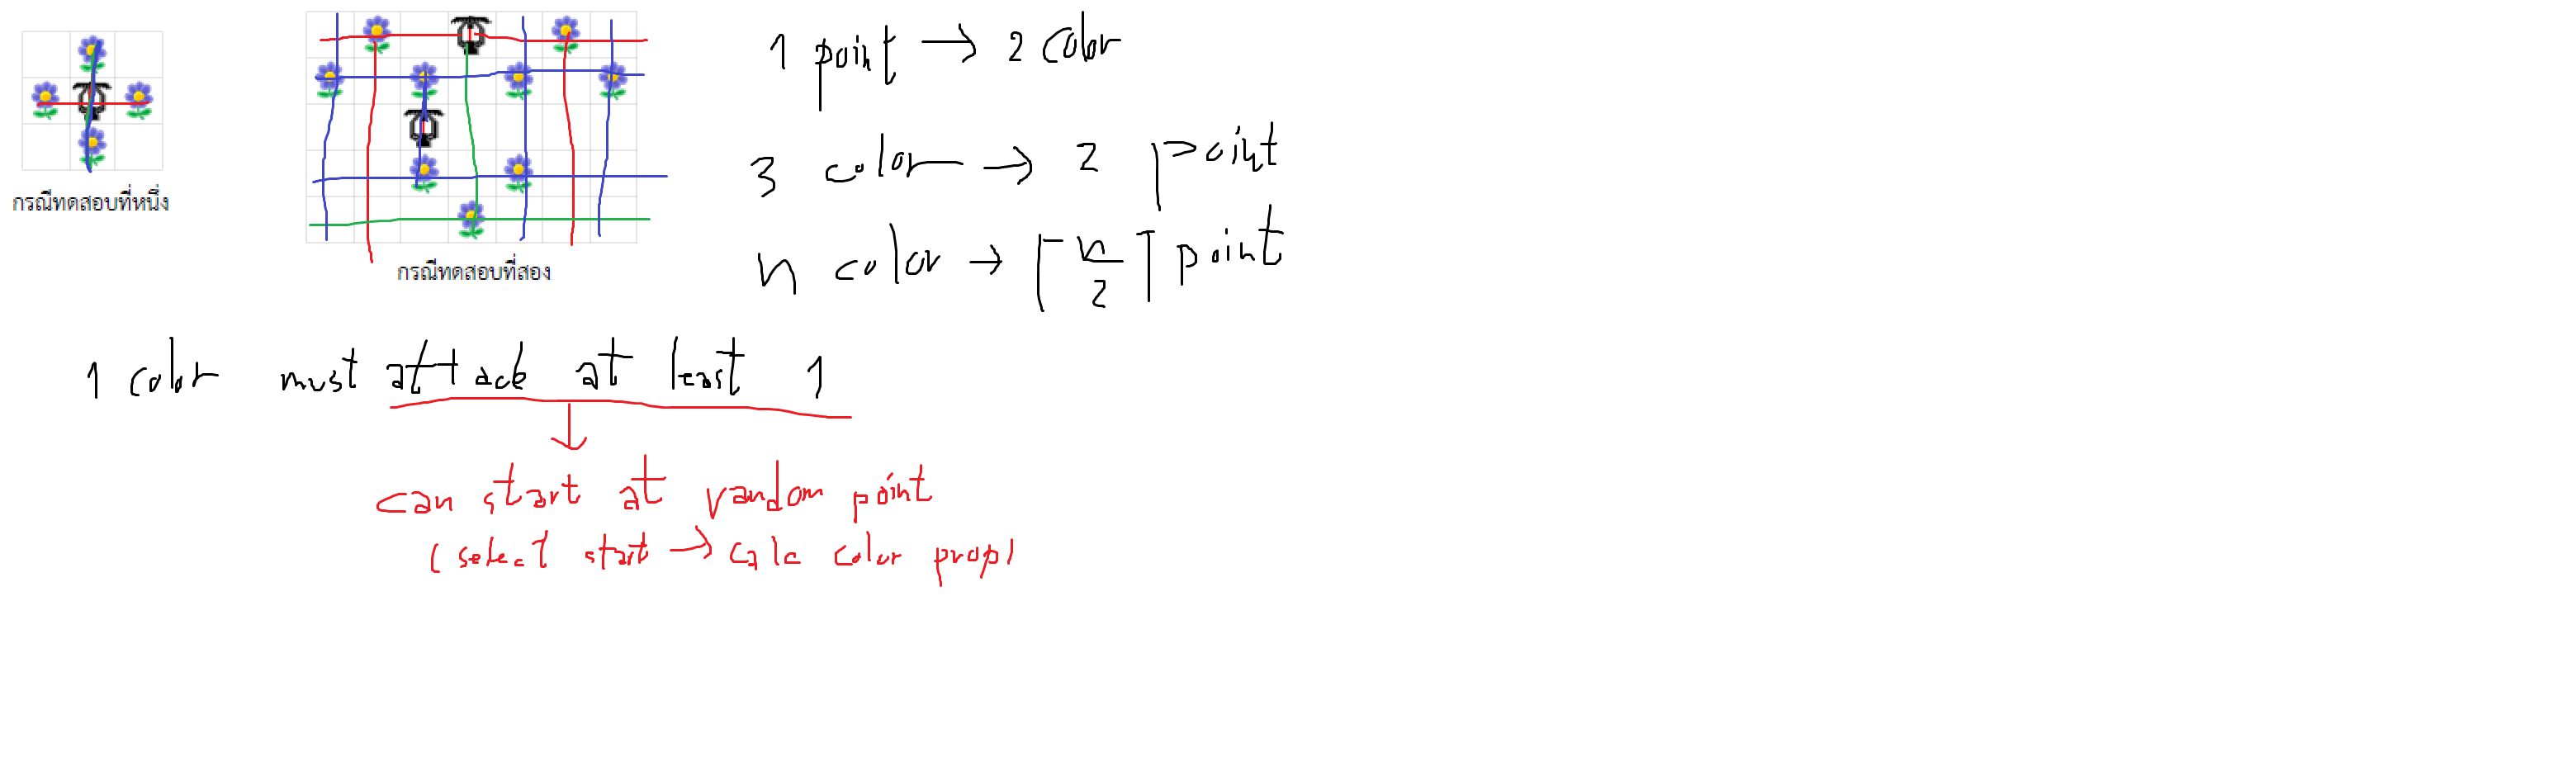 กรณีทดสอบที่หนึ่ง
กรณีทดสอบที่สอง
1 point → 2 color
3 color → 2 point
n color → ⌈n/2⌉ point
1 color must attack at least 1
can start at random point
(select start → calc color prop)